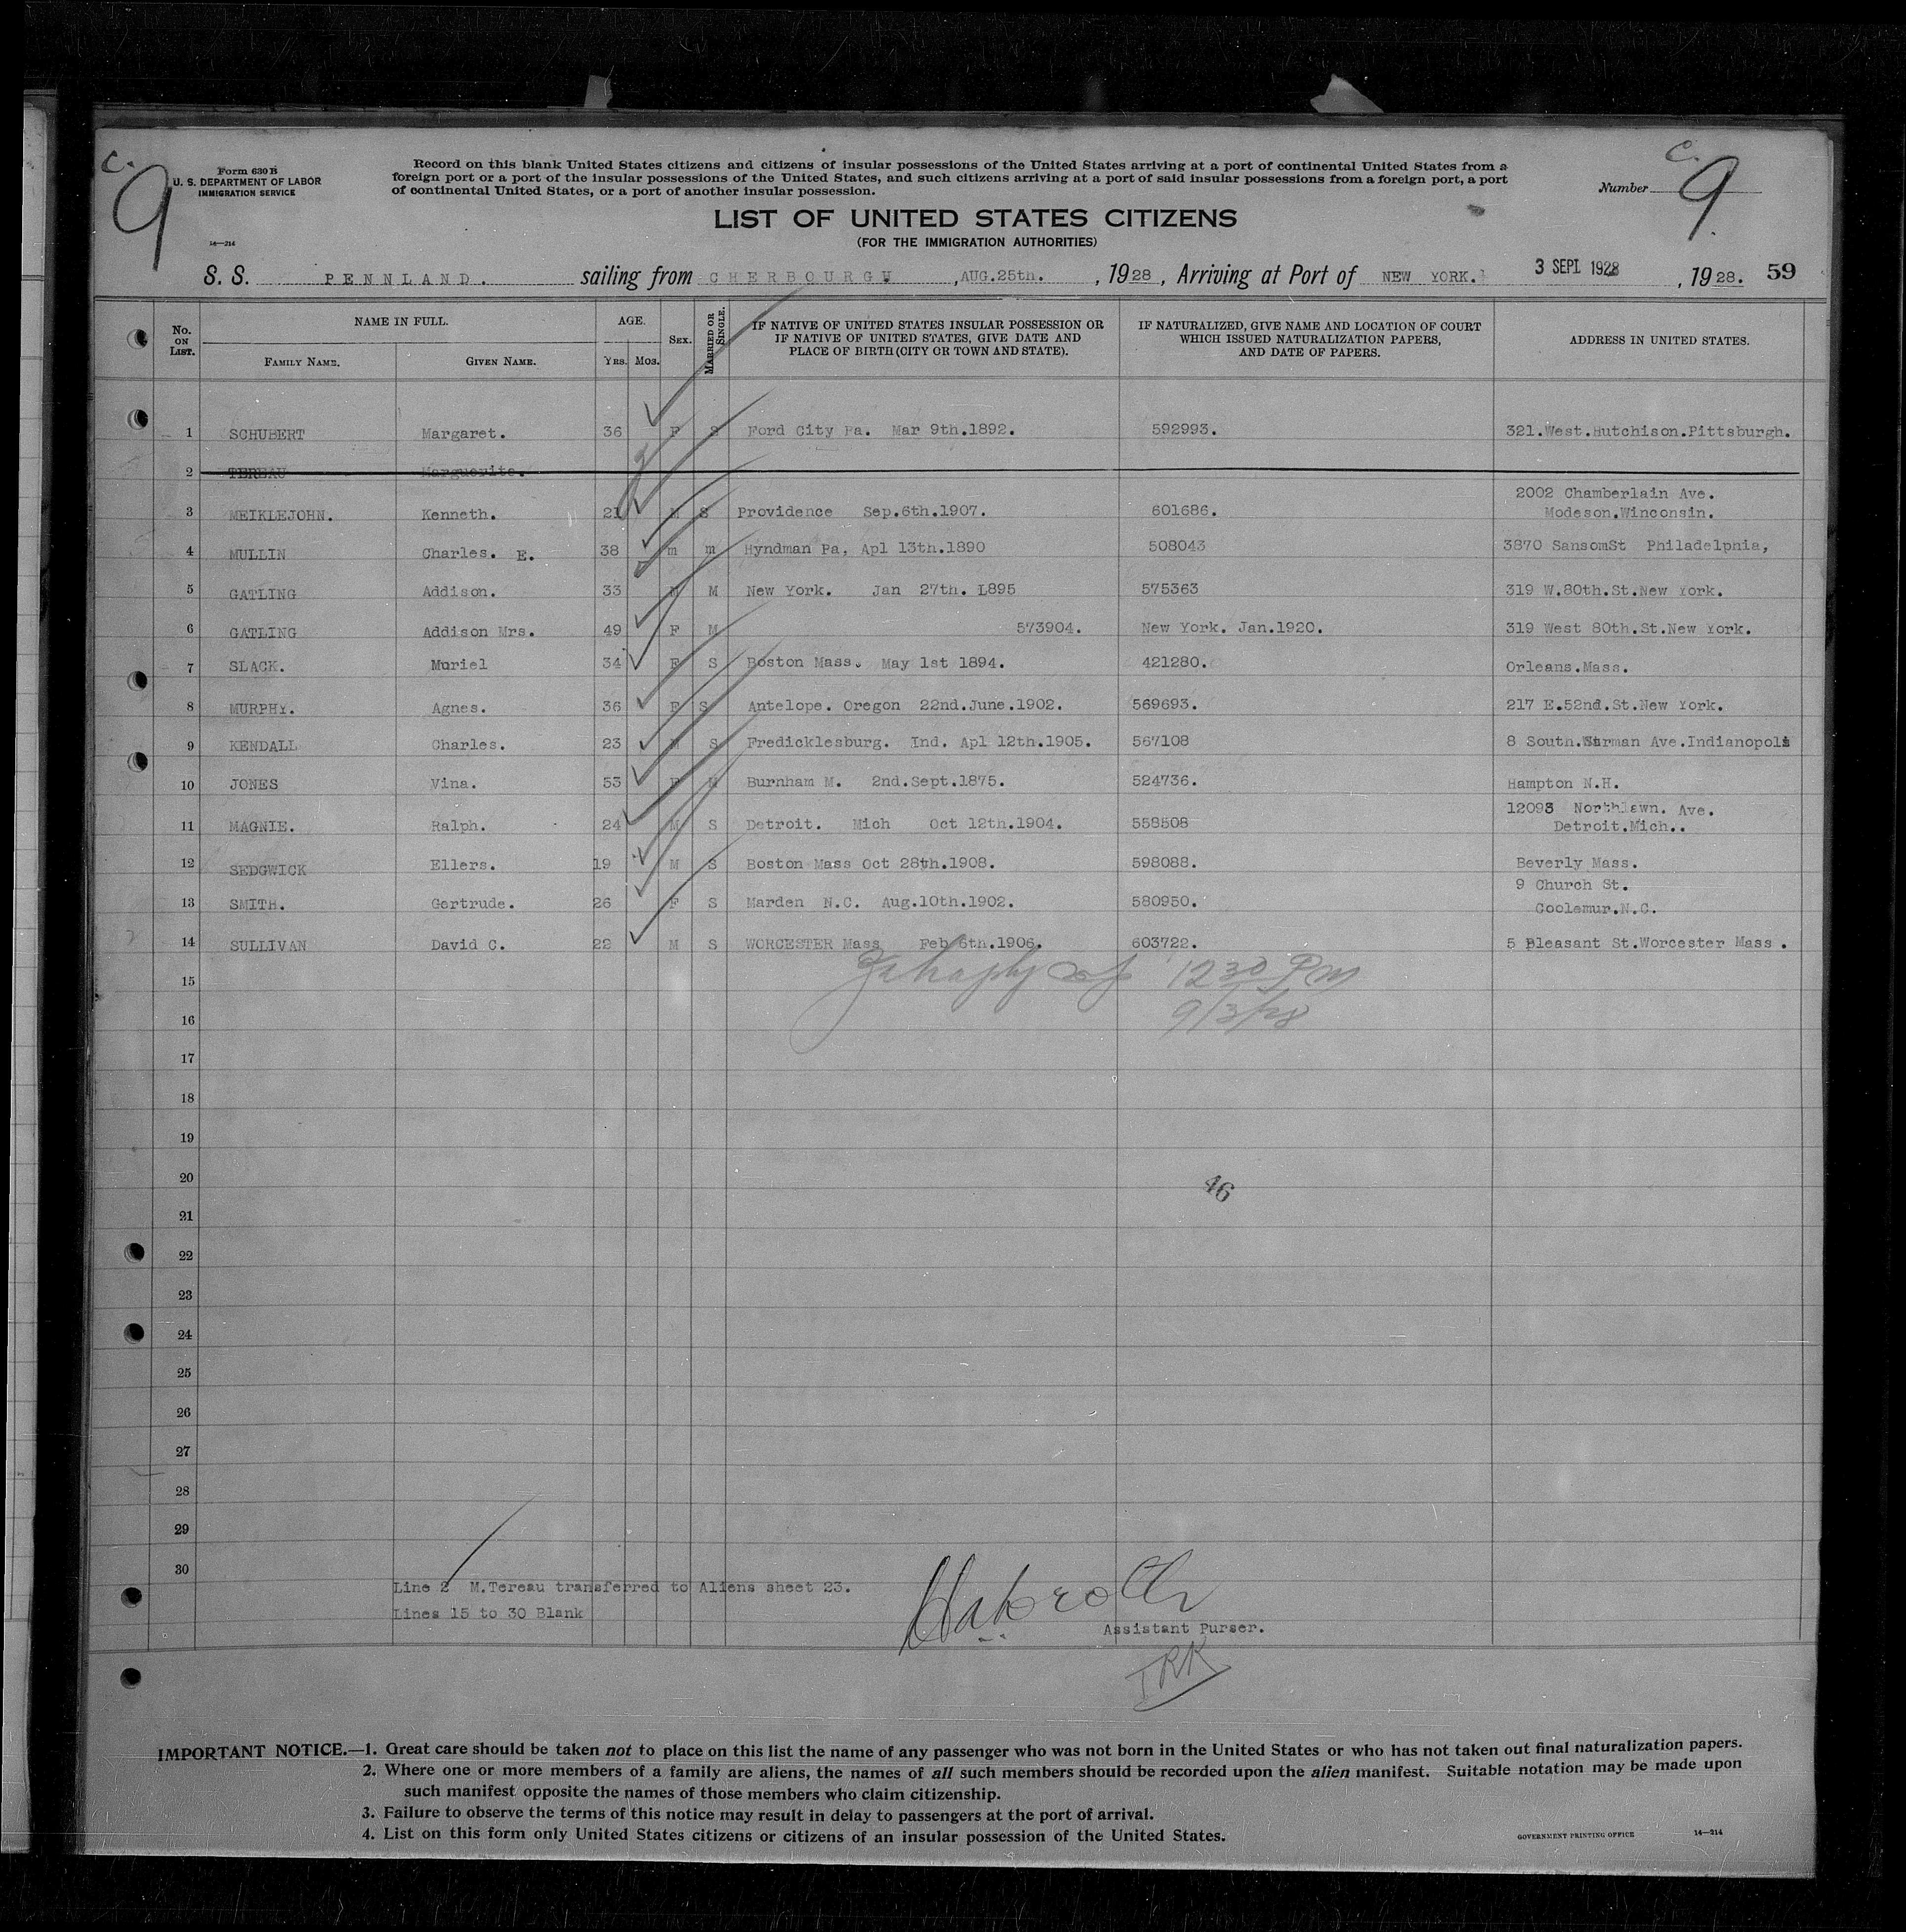 C. 9
Form 630 B
U. S. DEPARTMENT OF LABOR
IMMIGRATION SERVICE
14—214
Record on this blank United States citizens and citizens of insular possessions of the United States arriving at a port of continental United States from a
foreign port or a port of the insular possessions of the United States, and such citizens arriving at a port of said insular possessions from a foreign port, a port
of continental United States, or a port of another insular possession.
Number C. 9.
LIST OF UNITED STATES CITIZENS
(FOR THE IMMIGRATION AUTHORITIES)
S. S. PENNLAND. sailing from CHERBOURGH, AUG.25th., 1928, Arriving at Port of NEW YORK. 3 SEPT 1928, 1928. 59
No. ON LIST. NAME IN FULL. FAMILY NAME. GIVEN NAME. AGE. YRS. MOS. SEX. MARRIED OR SINGLE. IF NATIVE OF UNITED STATES INSULAR POSSESSION OR IF NATIVE OF UNITED STATES, GIVE DATE AND PLACE OF BIRTH (CITY OR TOWN AND STATE). IF NATURALIZED, GIVE NAME AND LOCATION OF COURT WHICH ISSUED NATURALIZATION PAPERS, AND DATE OF PAPERS. ADDRESS IN UNITED STATES.
1 SCHUBERT Margaret. 36 F S Ford City Pa. Mar 9th.1892. 592993. 321.West.Hutchison.Pittsburgh.
2 TEREAU Marguerite.
2002 Chamberlain Ave.
3 MEIKLEJOHN. Kenneth. 21 M S Providence Sep.6th.1907. 601686. Modeson.Winconsin.
4 MULLIN Charles. E. 38 m m Hyndman Pa, Apl 13th.1890 508043 3870 SansomSt Philadelphia,
5 GATLING Addison. 33 M M New York. Jan 27th. L895 575363 319 W.80th.St.New York.
6 GATLING Addison Mrs. 49 F M 573904. New York. Jan.1920. 319 West 80th.St.New York.
7 SLACK. Muriel 34 F S Boston Mass. May 1st 1894. 421280. Orleans.Mass.
8 MURPHY. Agnes. 36 F S Antelope. Oregon 22nd.June.1902. 569693. 217 E.52nd.St.New York.
9 KENDALL Charles. 23 M S Fredicklesburg. Ind. Apl 12th.1905. 567108 8 South. Ave.Indianopolis
10 JONES Vina. 53 F M Burnham M. 2nd.Sept.1875. 524736. Hampton N.H.
12093 Northlawn. Ave.
11 MAGNIE. Ralph. 24 M S Detroit. Mich Oct 12th.1904. 558508 Detroit.Mich..
12 SEDGWICK Ellers. 19 M S Boston Mass Oct 28th.1908. 598088. Beverly Mass.
9 Church St.
13 SMITH. Gertrude. 26 F S Marden N.C. Aug.10th.1902. 580950. Coolemur.N.C.
14 SULLIVAN David C. 22 M S WORCESTER Mass Feb 6th.1906. 603722. 5 Pleasant St.Worcester Mass.
15 1230 PM
16 9/3/28
17
18
19
20 46
21
22
23
24
25
26
27
28
29
30
Line 2 M.Tereau transferred to Aliens sheet 23.
Lines 15 to 30 Blank
Assistant Purser.
IMPORTANT NOTICE.—1. Great care should be taken not to place on this list the name of any passenger who was not born in the United States or who has not taken out final naturalization papers.
2. Where one or more members of a family are aliens, the names of all such members should be recorded upon the alien manifest. Suitable notation may be made upon
such manifest opposite the names of those members who claim citizenship.
3. Failure to observe the terms of this notice may result in delay to passengers at the port of arrival.
4. List on this form only United States citizens or citizens of an insular possession of the United States.
GOVERNMENT PRINTING OFFICE 14—214